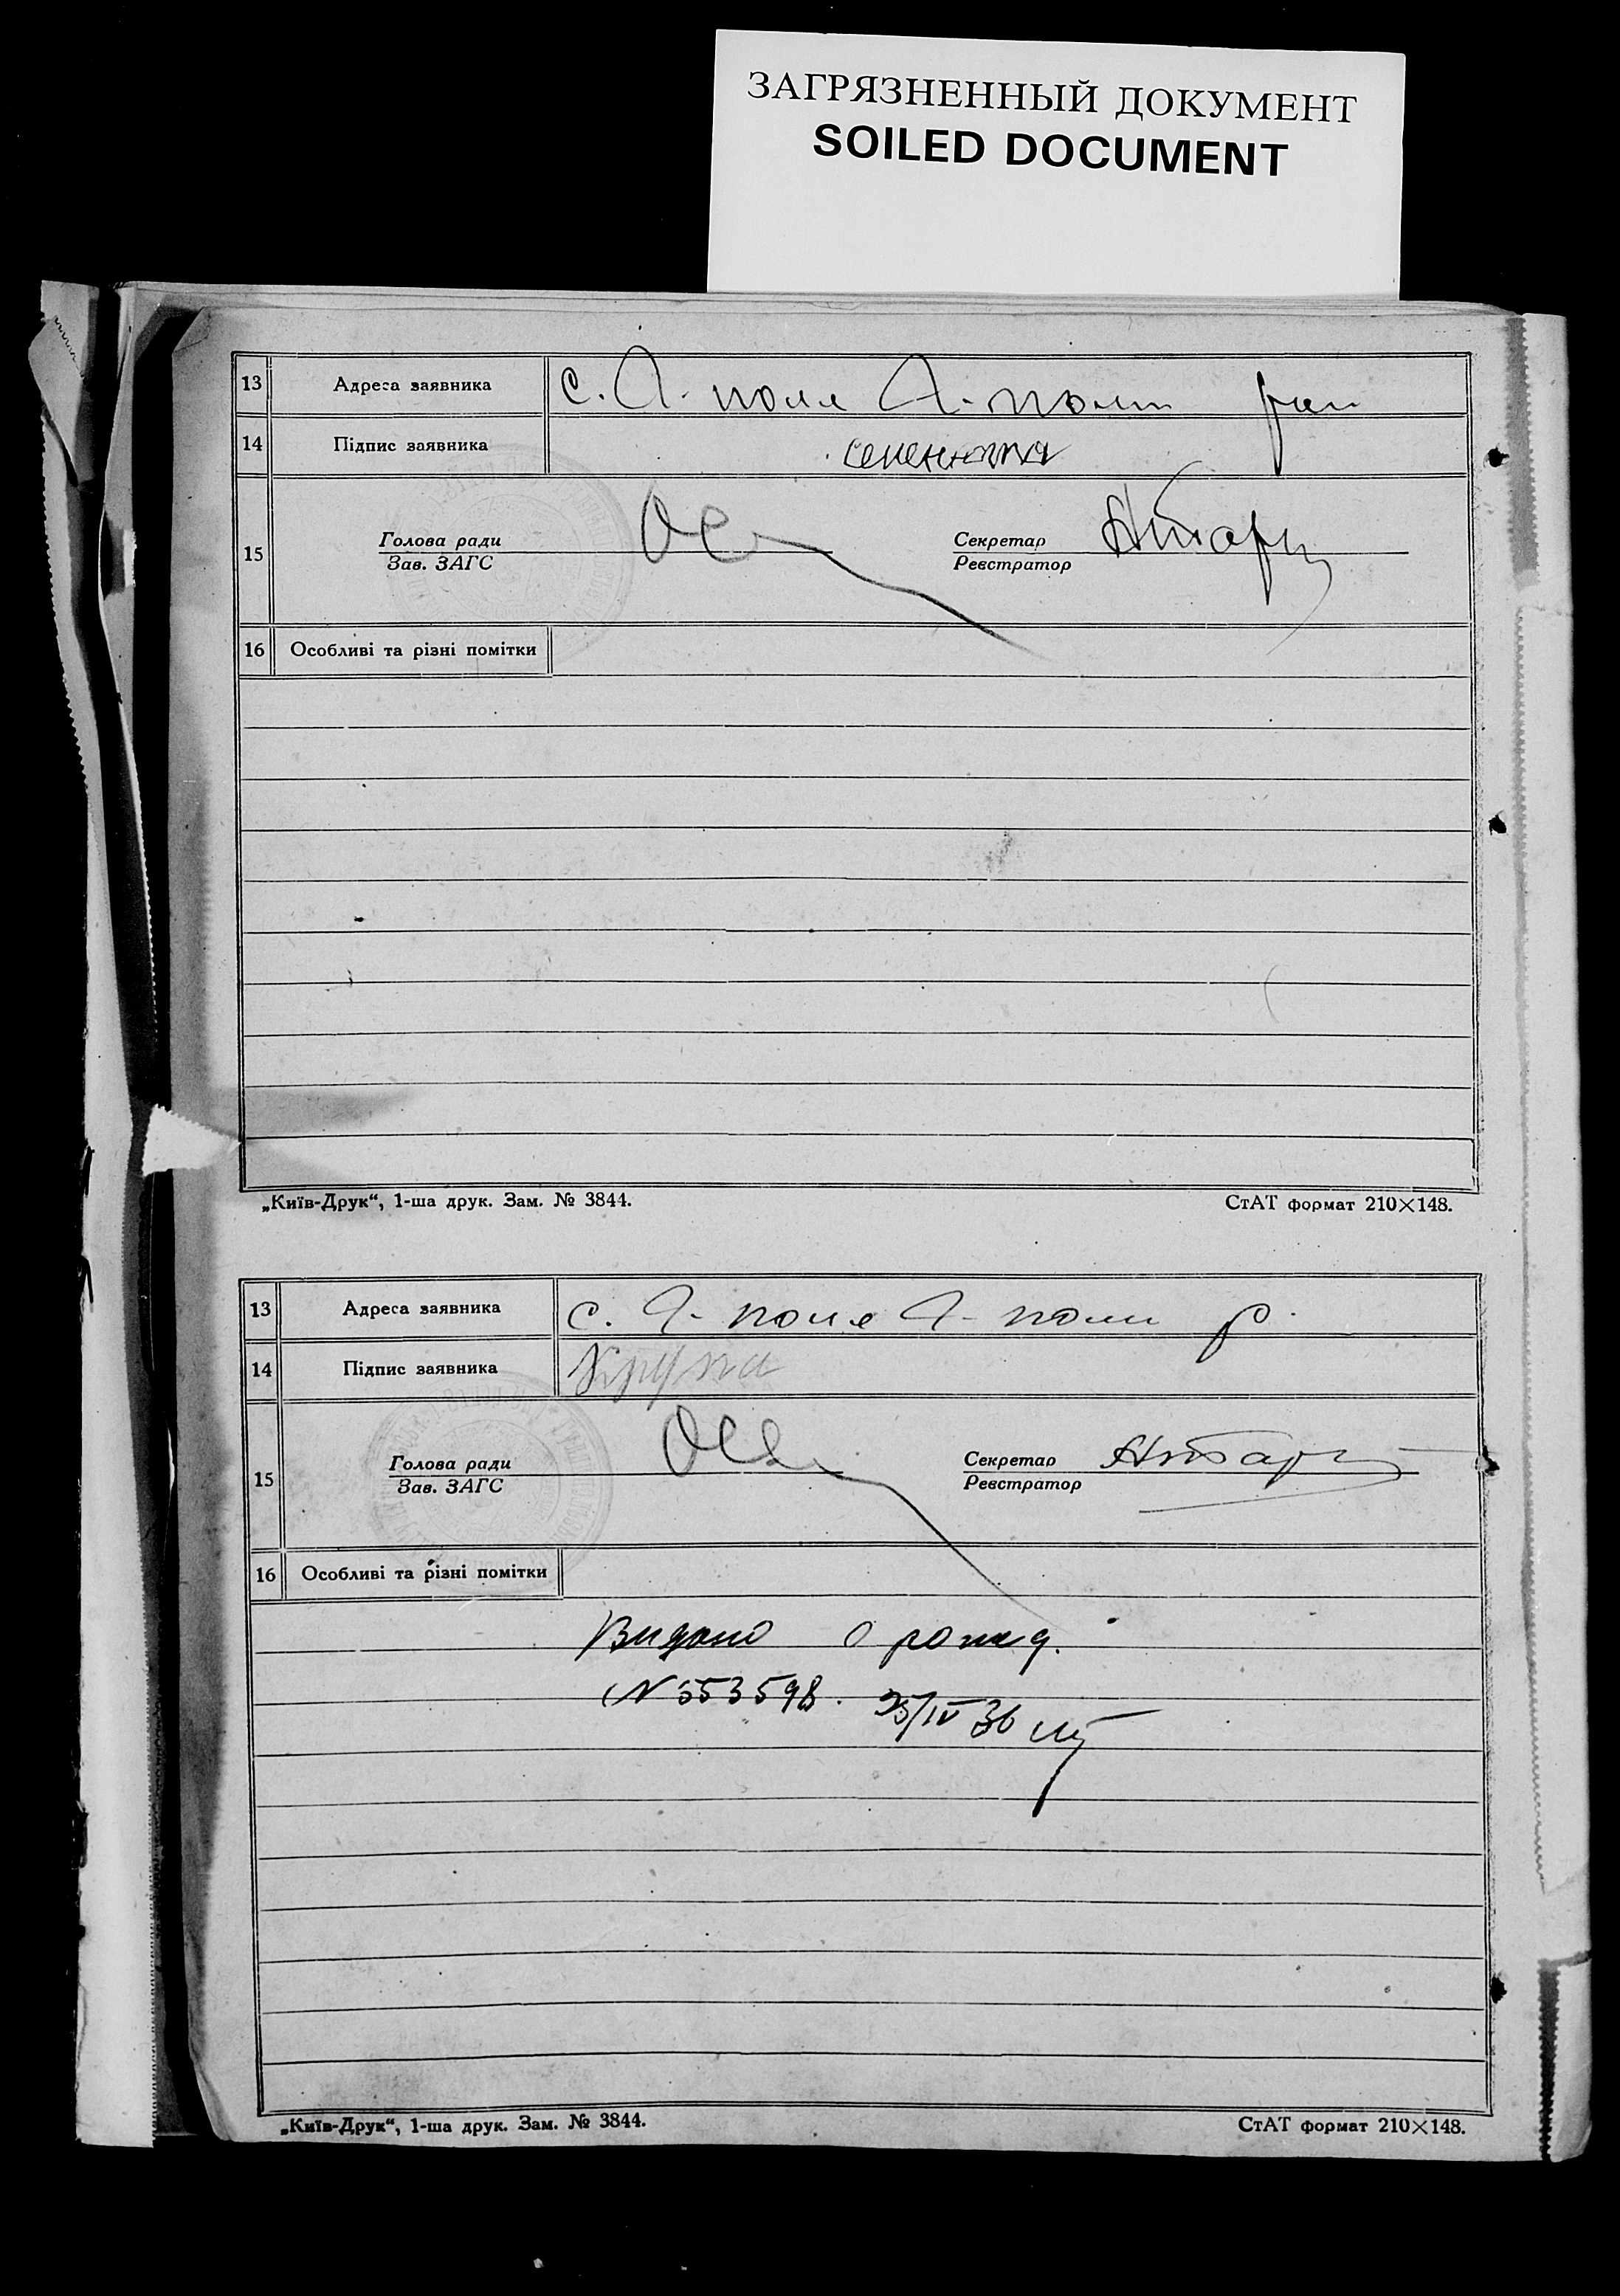 ЗАГРЯЗНЕННЫЙ ДОКУМЕНТ
SOILED DOCUMENT
13 Адреса заявника с. Я- поле Я- поль
14 Підпис заявника
15 Голова ради Зав. ЗАГС Секретар Реєстратор
16 Особливі та різні помітки
„Київ-Друк“, 1-ша друк. Зам. № 3844. СтАТ формат 210×148.
13 Адреса заявника с. Я- поле Я- поль р.
14 Підпис заявника
15 Голова ради Зав. ЗАГС Секретар Реєстратор
16 Особливі та різні помітки
Видано
N 553598. 25/IV 36
„Київ-Друк“, 1-ша друк. Зам. № 3844. СтАТ формат 210×148.